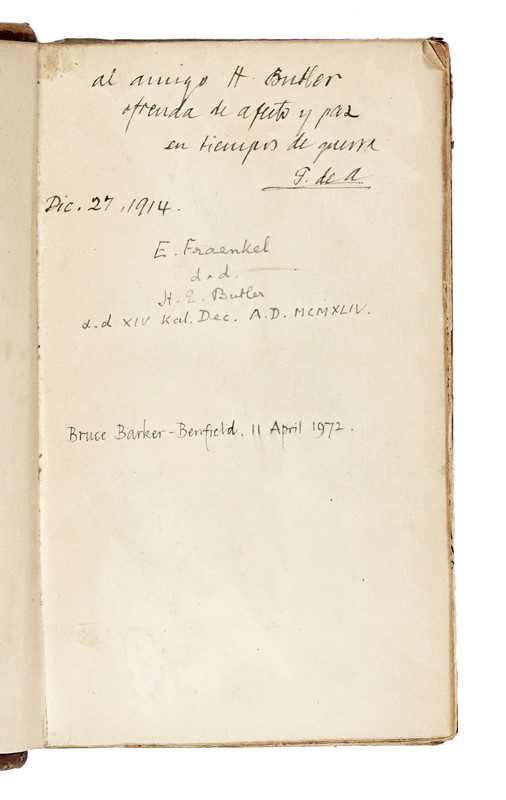 al amigo H. Butler
ofrenda de afecto y paz
en tiempos de guerra
T. de A.
Dic. 27, 1914.
E. Fraenkel
d.d.
H. E. Butler
a.d XIV Kal. Dec. A.D. MCMXLIV.
Bruce Barker-Benfield. 11 April 1972.